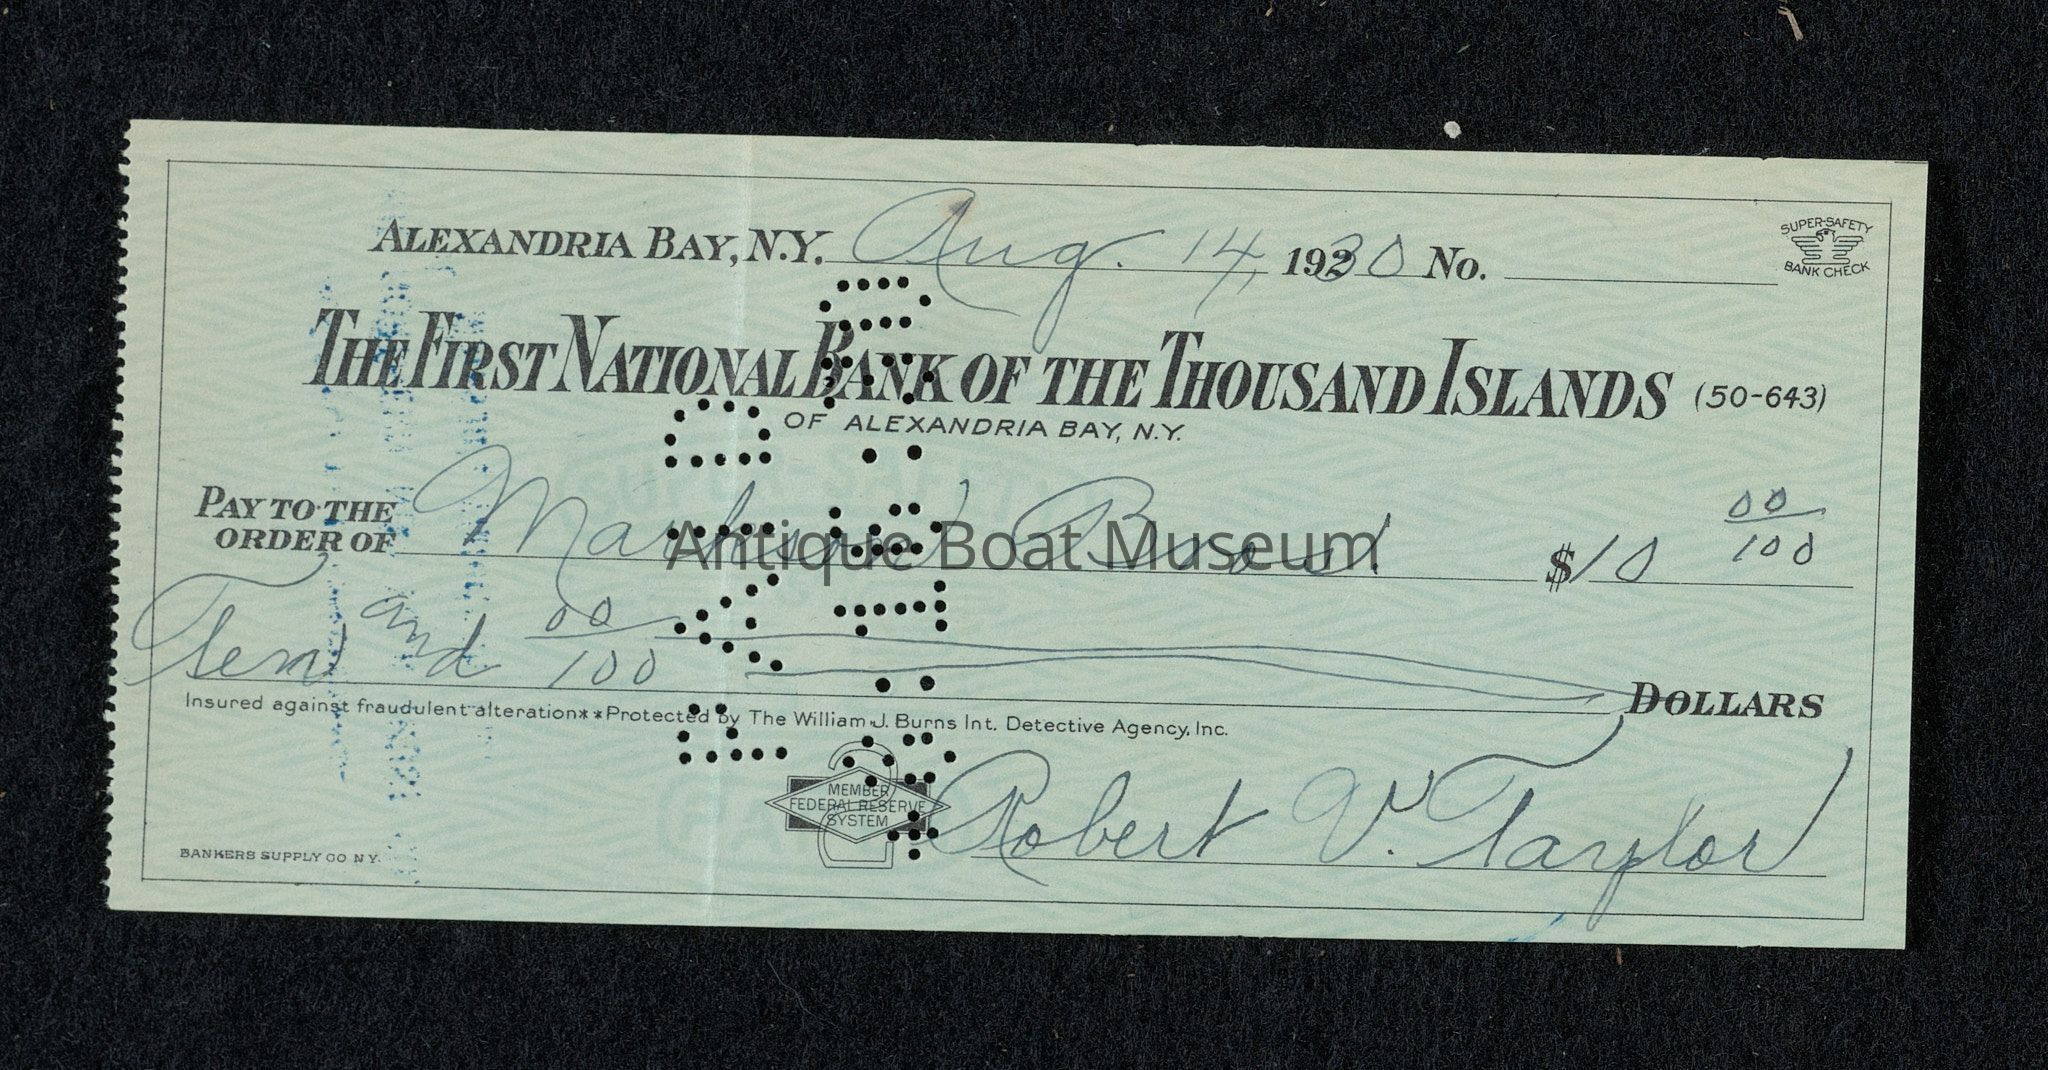 ALEXANDRIA BAY, N.Y. Aug. 14, 1930 No.
SUPER-SAFETY
BANK CHECK
THE FIRST NATIONAL BANK OF THE THOUSAND ISLANDS (50-643)
OF ALEXANDRIA BAY, N.Y.
PAY TO THE
ORDER OF Bros. $10 00/100
Antique Boat Museum
Ten and 00/100 DOLLARS
Insured against fraudulent alteration**Protected by The William J. Burns Int. Detective Agency, Inc.
MEMBER
FEDERAL RESERVE
SYSTEM
Robert V. Taylor
BANKERS SUPPLY CO N.Y.